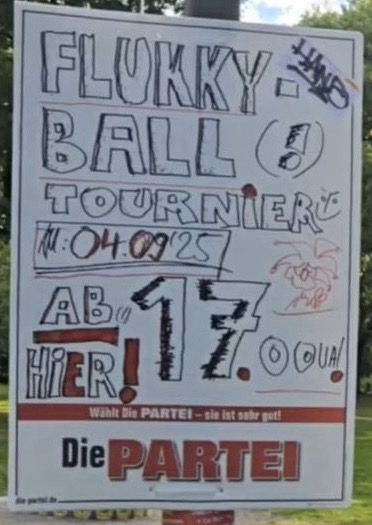 FLUKKY-
HANS
BALL (!)
TOURNIER
AM: 04.09'25
AB
17.00 UA!
HiER!
Wählt Die PARTEI – sie ist sehr gut!
Die PARTEI
die-partei.de